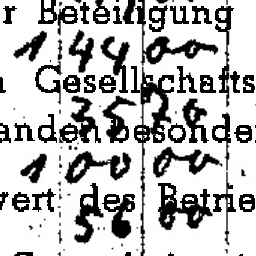 r Beteiligung
1 44 00
Gesellschafts
35 70
anden besonder
1 00 00
wert des Betrie
56 00